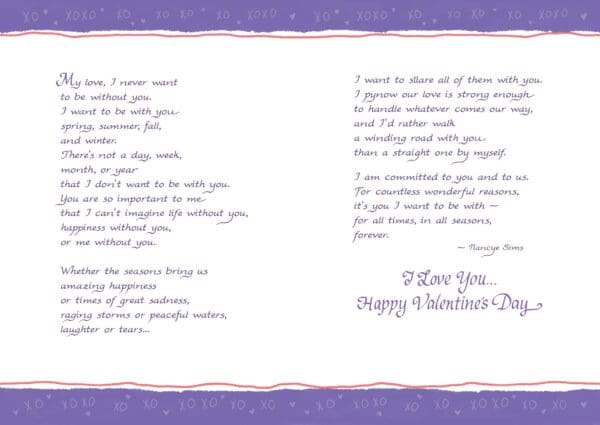 My love, I never want
to be without you.
I want to be with you
spring, summer, fall,
and winter.
There's not a day, week,
month, or year
that I don't want to be with you.
You are so important to me
that I can't imagine life without you,
happiness without you,
or me without you.
Whether the seasons bring us
amazing happiness
or times of great sadness,
raging storms or peaceful waters,
laughter or tears...
I want to sllare all of them with you.
I pynow our love is strong enough
to handle whatever comes our way,
and I'd rather walk
a winding road with you
than a straight one by myself.
I am committed to you and to us.
For countless wonderful reasons,
it's you I want to be with ~
for all times, in all seasons,
forever.
~ Nancye Sims
I Love You...
Happy Valentine's Day